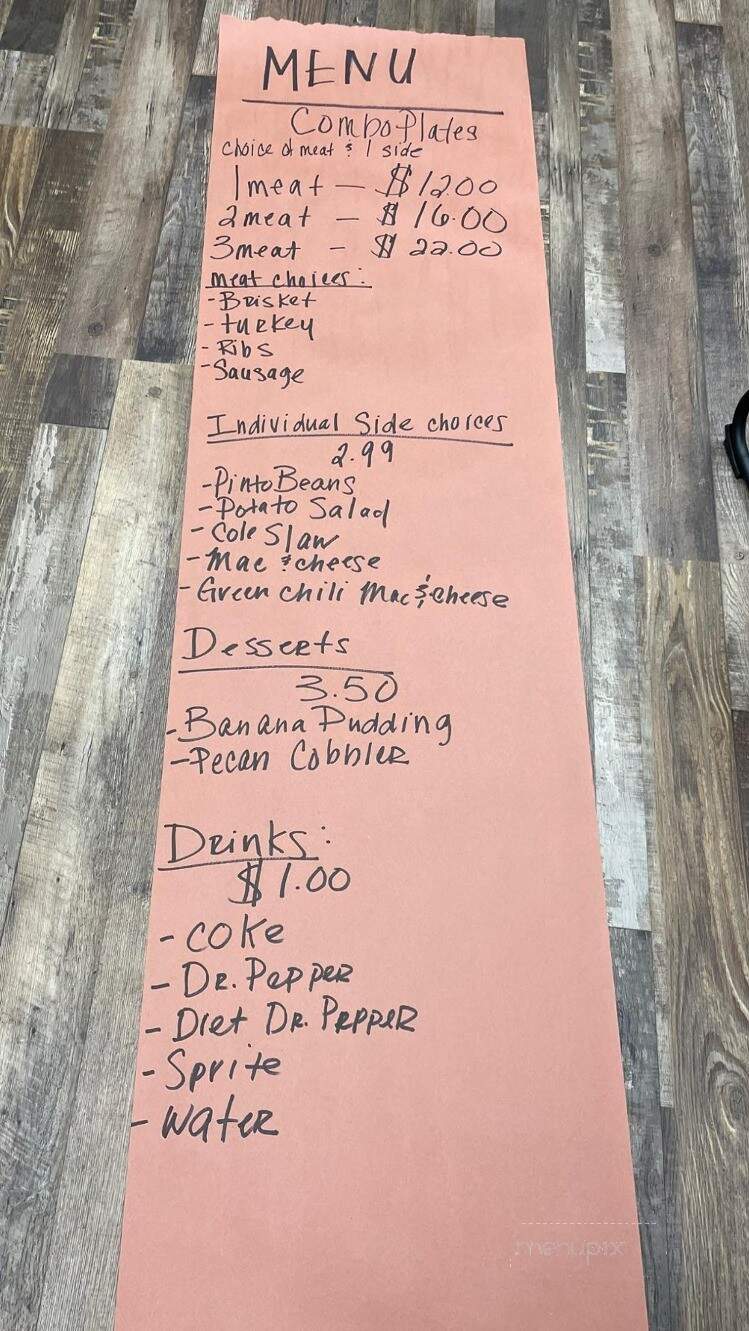 MENU
Combo Plates
Choice of meat & 1 side
1 meat – $12.00
2 meat – $16.00
3 meat – $22.00
meat choices:
- Brisket
- turkey
- Ribs
- Sausage
Individual Side choices
2.99
- Pinto Beans
- Potato Salad
- Cole Slaw
- Mac & cheese
- Green chili Mac & cheese
Desserts
3.50
- Banana Pudding
- Pecan Cobbler
Drinks:
$1.00
- Coke
- DR. Pepper
- Diet DR. Pepper
- Sprite
- Water
menupix